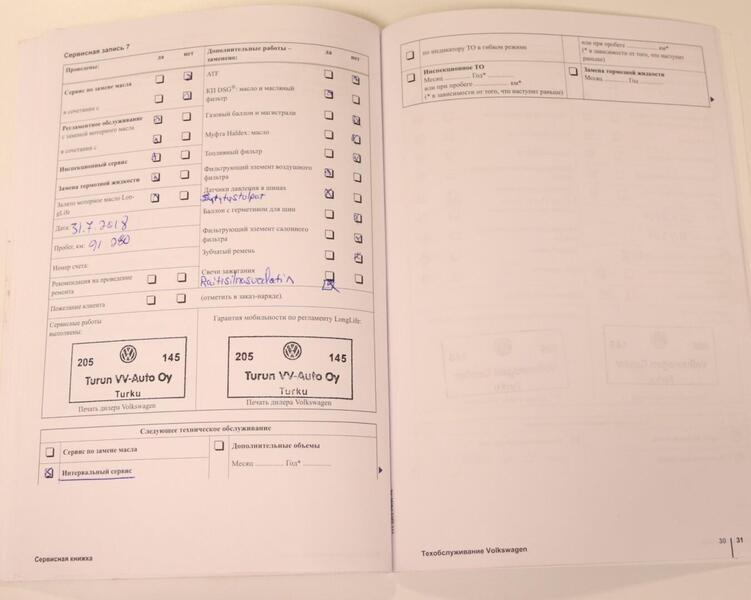 Сервисная запись 7
Проведены: да нет
Сервис по замене масла
в сочетании с
Регламентное обслуживание
с заменой моторного масла
в сочетании с
Инспекционный сервис
Замена тормозной жидкости
Залито моторное масло Lon-
gLife
Дата: 31.7.2018
Пробег, км: 91 280
Номер счета:
Рекомендация на проведение
ремонта
Пожелание клиента
Дополнительные работы –
заменено: да нет
ATF
КП DSG®: масло и масляный
фильтр
Газовый баллон и магистрали
Муфта Haldex: масло
Топливный фильтр
Фильтрующий элемент воздушного
фильтра
Датчики давления в шинах
Sytytystulpat
Баллон с герметиком для шин
Фильтрующий элемент салонного
фильтра
Зубчатый ремень
Свечи зажигания
Raitisilmasuodatin
(отметить в заказ-наряде).
Сервисные работы
выполнены:
205 145
Turun VV-Auto Oy
Turku
Печать дилера Volkswagen
Гарантия мобильности по регламенту LongLife:
205 145
Turun VV-Auto Oy
Turku
Печать дилера Volkswagen
Следующее техническое обслуживание
Сервис по замене масла
Интервальный сервис
Дополнительные объемы
Месяц ............ Год* ............
Сервисная книжка
по индикатору ТО в гибком режиме
Инспекционное ТО
Месяц ............ Год* ............
или при пробеге ............ км*
(* в зависимости от того, что наступит раньше)
или при пробеге ............ км*
(* в зависимости от того, что наступит
раньше)
Замена тормозной жидкости
Месяц ............ Год ............
Техобслуживание Volkswagen
30 31